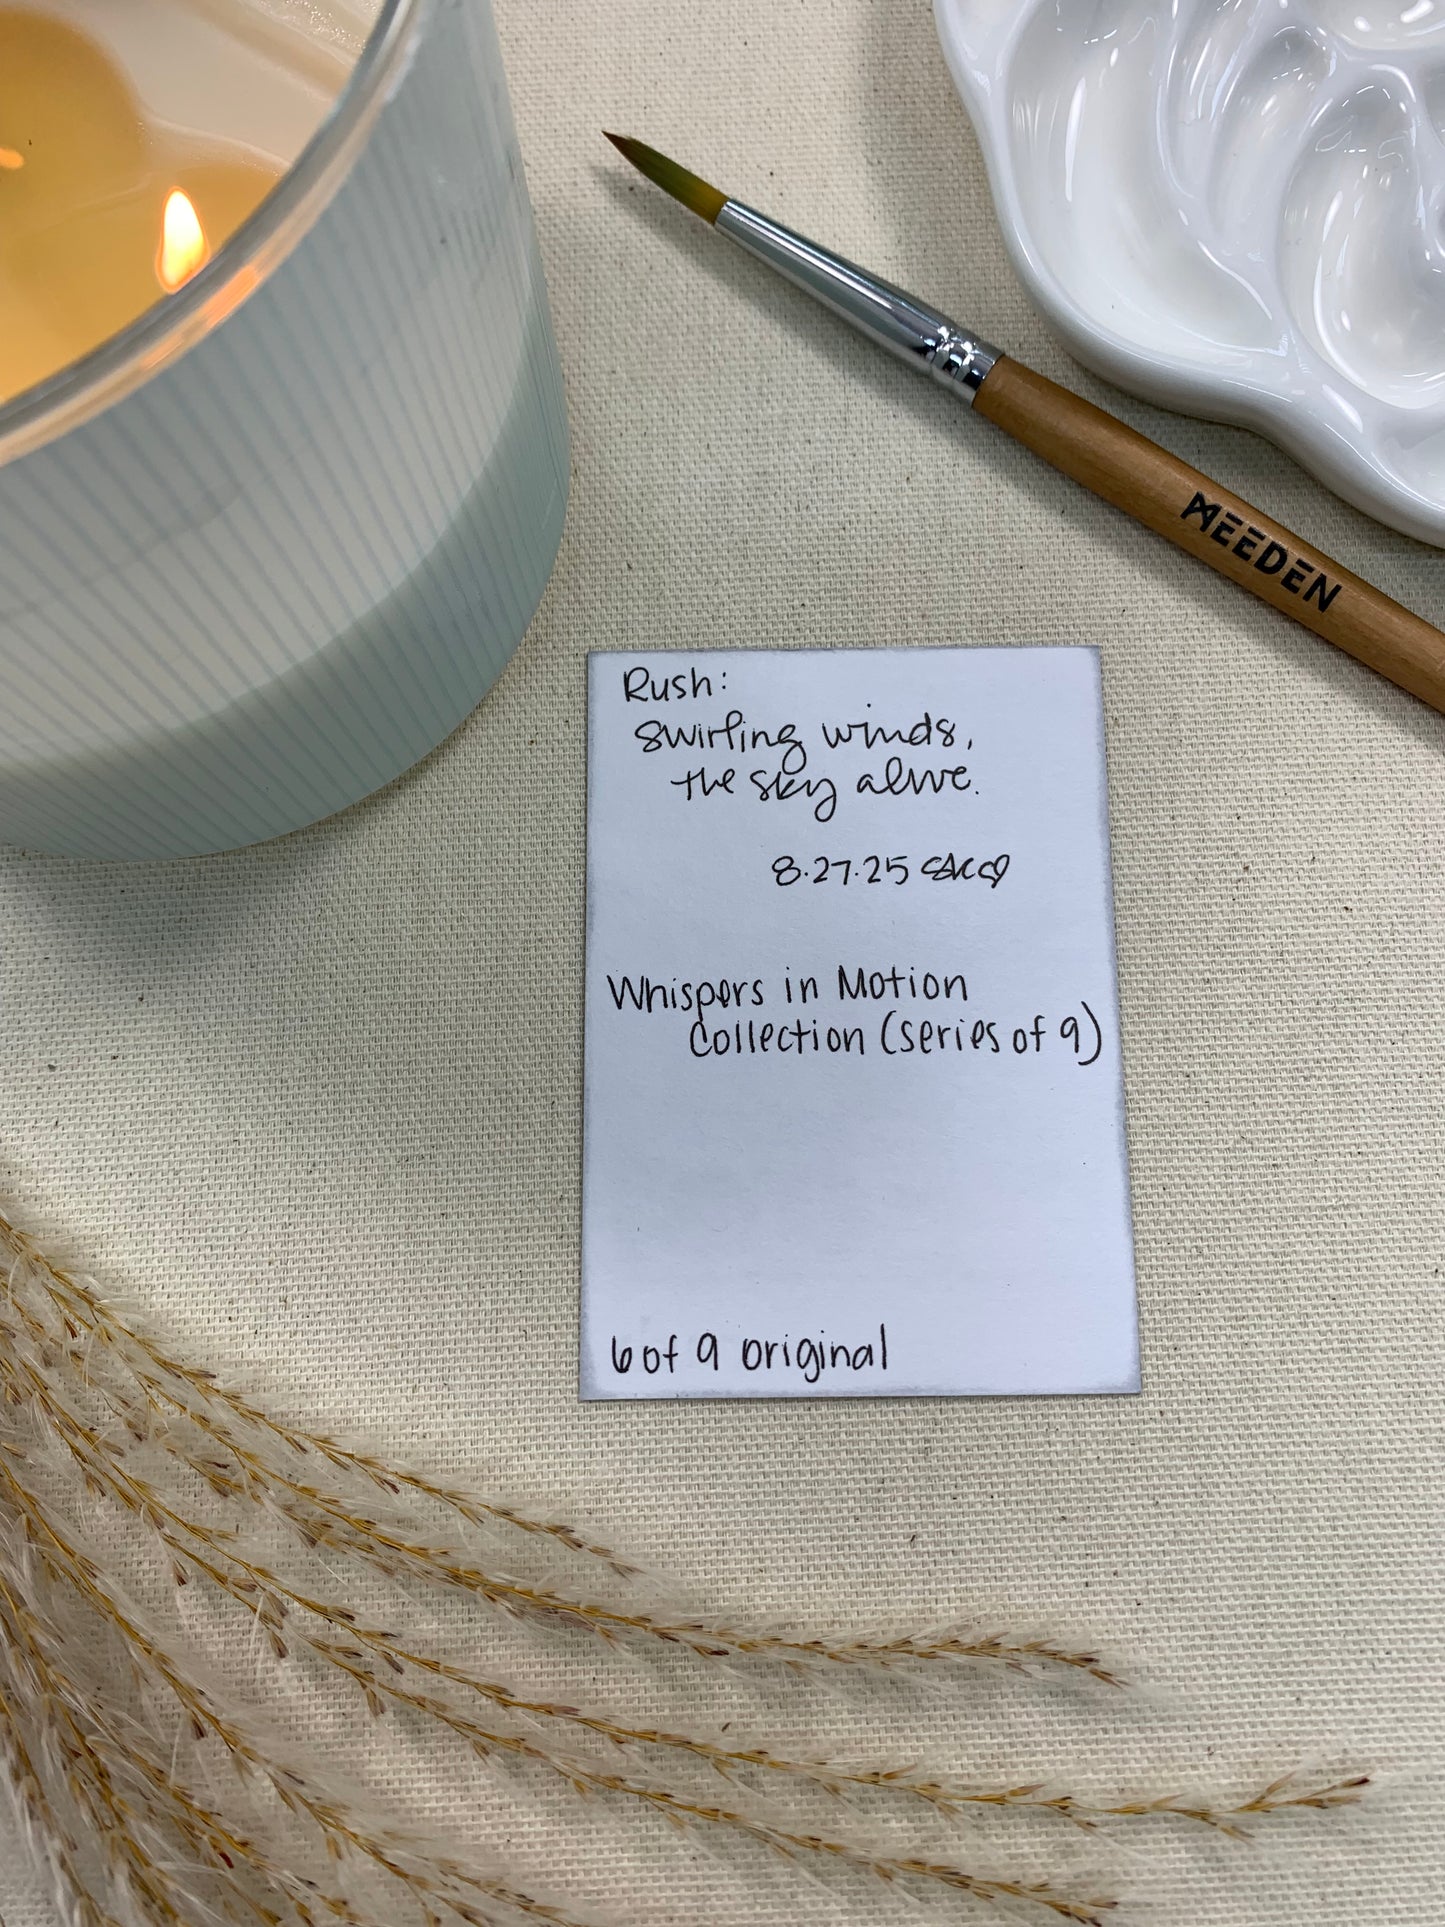 MEEDEN
Rush:
swirling winds,
the sky alive.
8.27.25 SK♡
Whispers in Motion
Collection (series of 9)
6 of 9 original